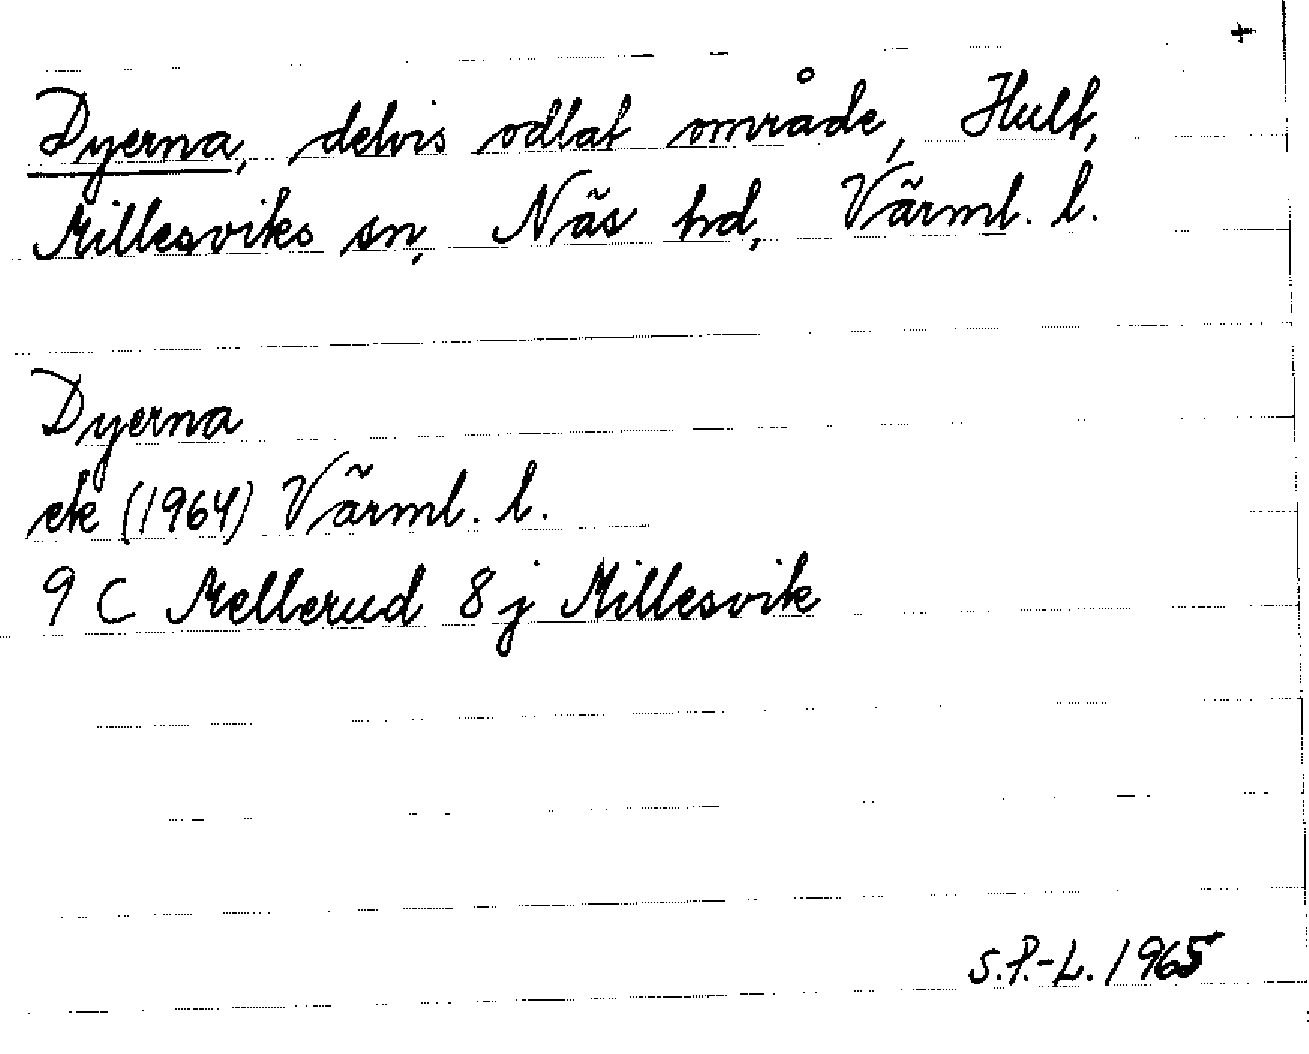 +
Dyerna, delvis odlat område, Hult,
Millesviks sn, Näs hd, Värml. l.
Dyerna
ek (1964) Värml. l.
9 C Mellerud 8 j Millesvik
S.P.-L. 1965